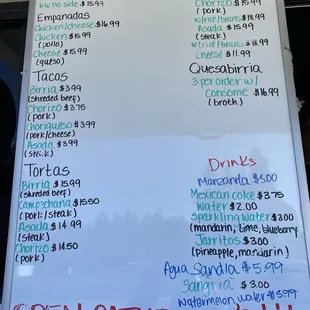 w no side $15.99
Empanadas
Chicken/cheese $16.99
Chicken $15.99
(pollo)
Cheese $15.99
(queso)
Tacos
Birria $3.99
(shreded beef)
Chorizo $3.75
(pork)
Choriqueso $3.99
(pork/cheese)
Asada $3.99
(steak)
Tortas
Birria $15.99
(shredded beef)
Campechana $15.50
(pork/steak)
Asada $14.99
(steak)
Chorizo $14.50
(pork)
Chorizo $15.99
(pork)
w/rice/beans $18.99
Asada $15.99
(steak)
w/rice/beans $18.99
Cheese $11.99
Quesabirria
3 per order w/
Consome $16.99
(broth)
Drinks
Manzanita $3.00
Mexican coke $3.75
Water $2.00
Sparkling water $3.00
(mandarin, lime, blueberry
Jarritos $3.00
(pineapple, mandarin)
Agua Sandia $5.99
Sangria $3.00
Watermelon water $5.99